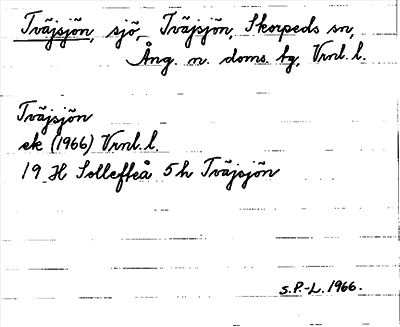 Tväjsjön, sjö, Tväjsjön, Skorpeds sn,
Ång. n. doms. bg, Vrnl. l.
Tväjsjön
ek (1966) Vrnl. l.
19 H Sollefteå 5h Tväjsjön
S.P.-L. 1966.